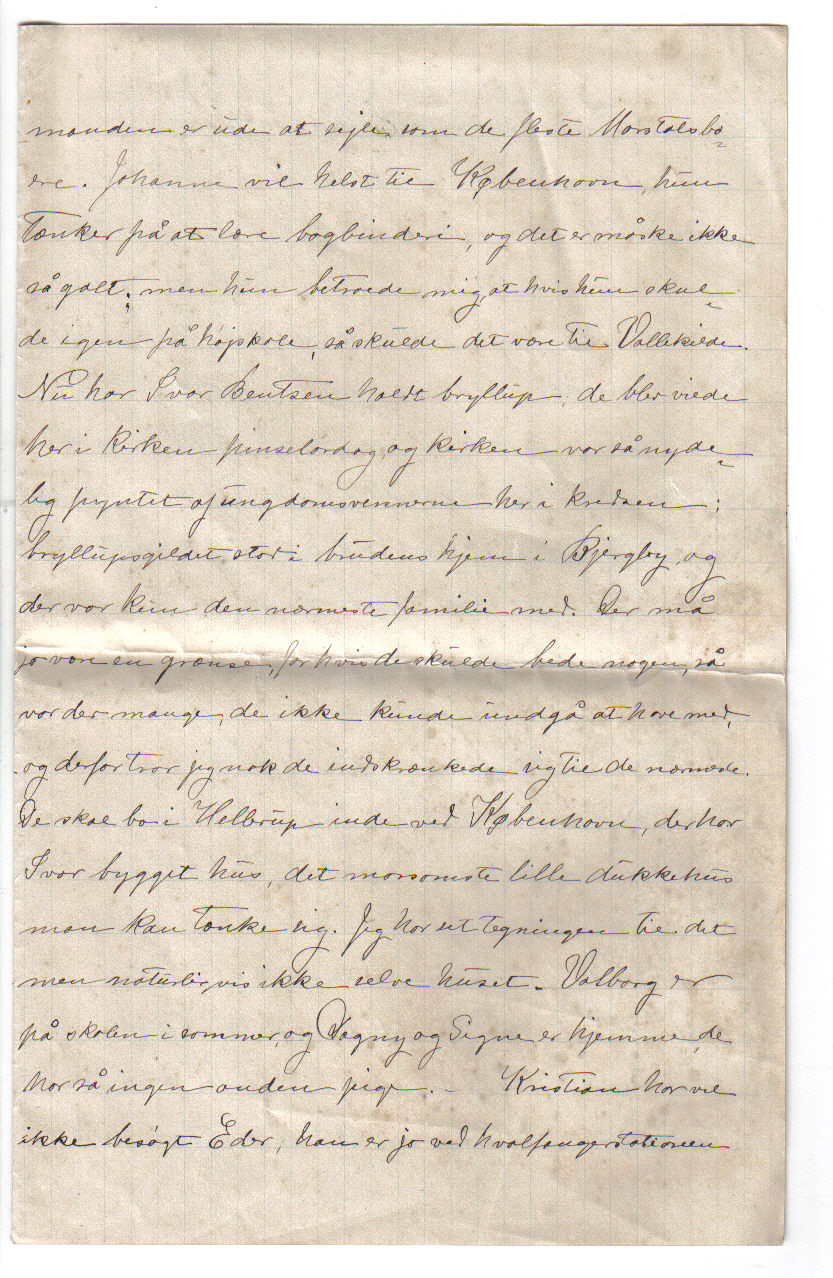 manden er ude at sejle som de fleste Marstalsbo=
ere. Johanne vil helst til København, hun
tænker på at lære bogbinderi, og det er måske ikke
så galt; men hun betroede mig, at hvis hun skul=
de igen på højskole, så skulde det være til Vallekilde.
Nu har Ivar Bentsen holdt bryllup, de blev viede
her i Kirken pinselørdag, og kirken var så nyde=
lig pyntet af ungdomsvennerne her i kredsen;
bryllupsgildet stod i brudens hjem i Bjergby, og
der var kun den nærmeste familie med. Der må
jo være en grænse, for hvis de skulde bede nogen, så
var der mange, de ikke kunde undgå at have med,
og derfor tror jeg nok de indskrænkede sig til de nærmeste.
De skal bo i Hellerup inde ved København, der har
Ivar bygget hus, det morsomste lille dukkehus
man kan tænke sig. Jeg har set tegningen til det
men naturligvis ikke selve huset. Valborg er
på skolen i sommer, og Dagny og Signe er hjemme, de
har så ingen anden pige. – Kristian har vel
ikke besøgt Eder, han er jo ved hvalfangerstationen